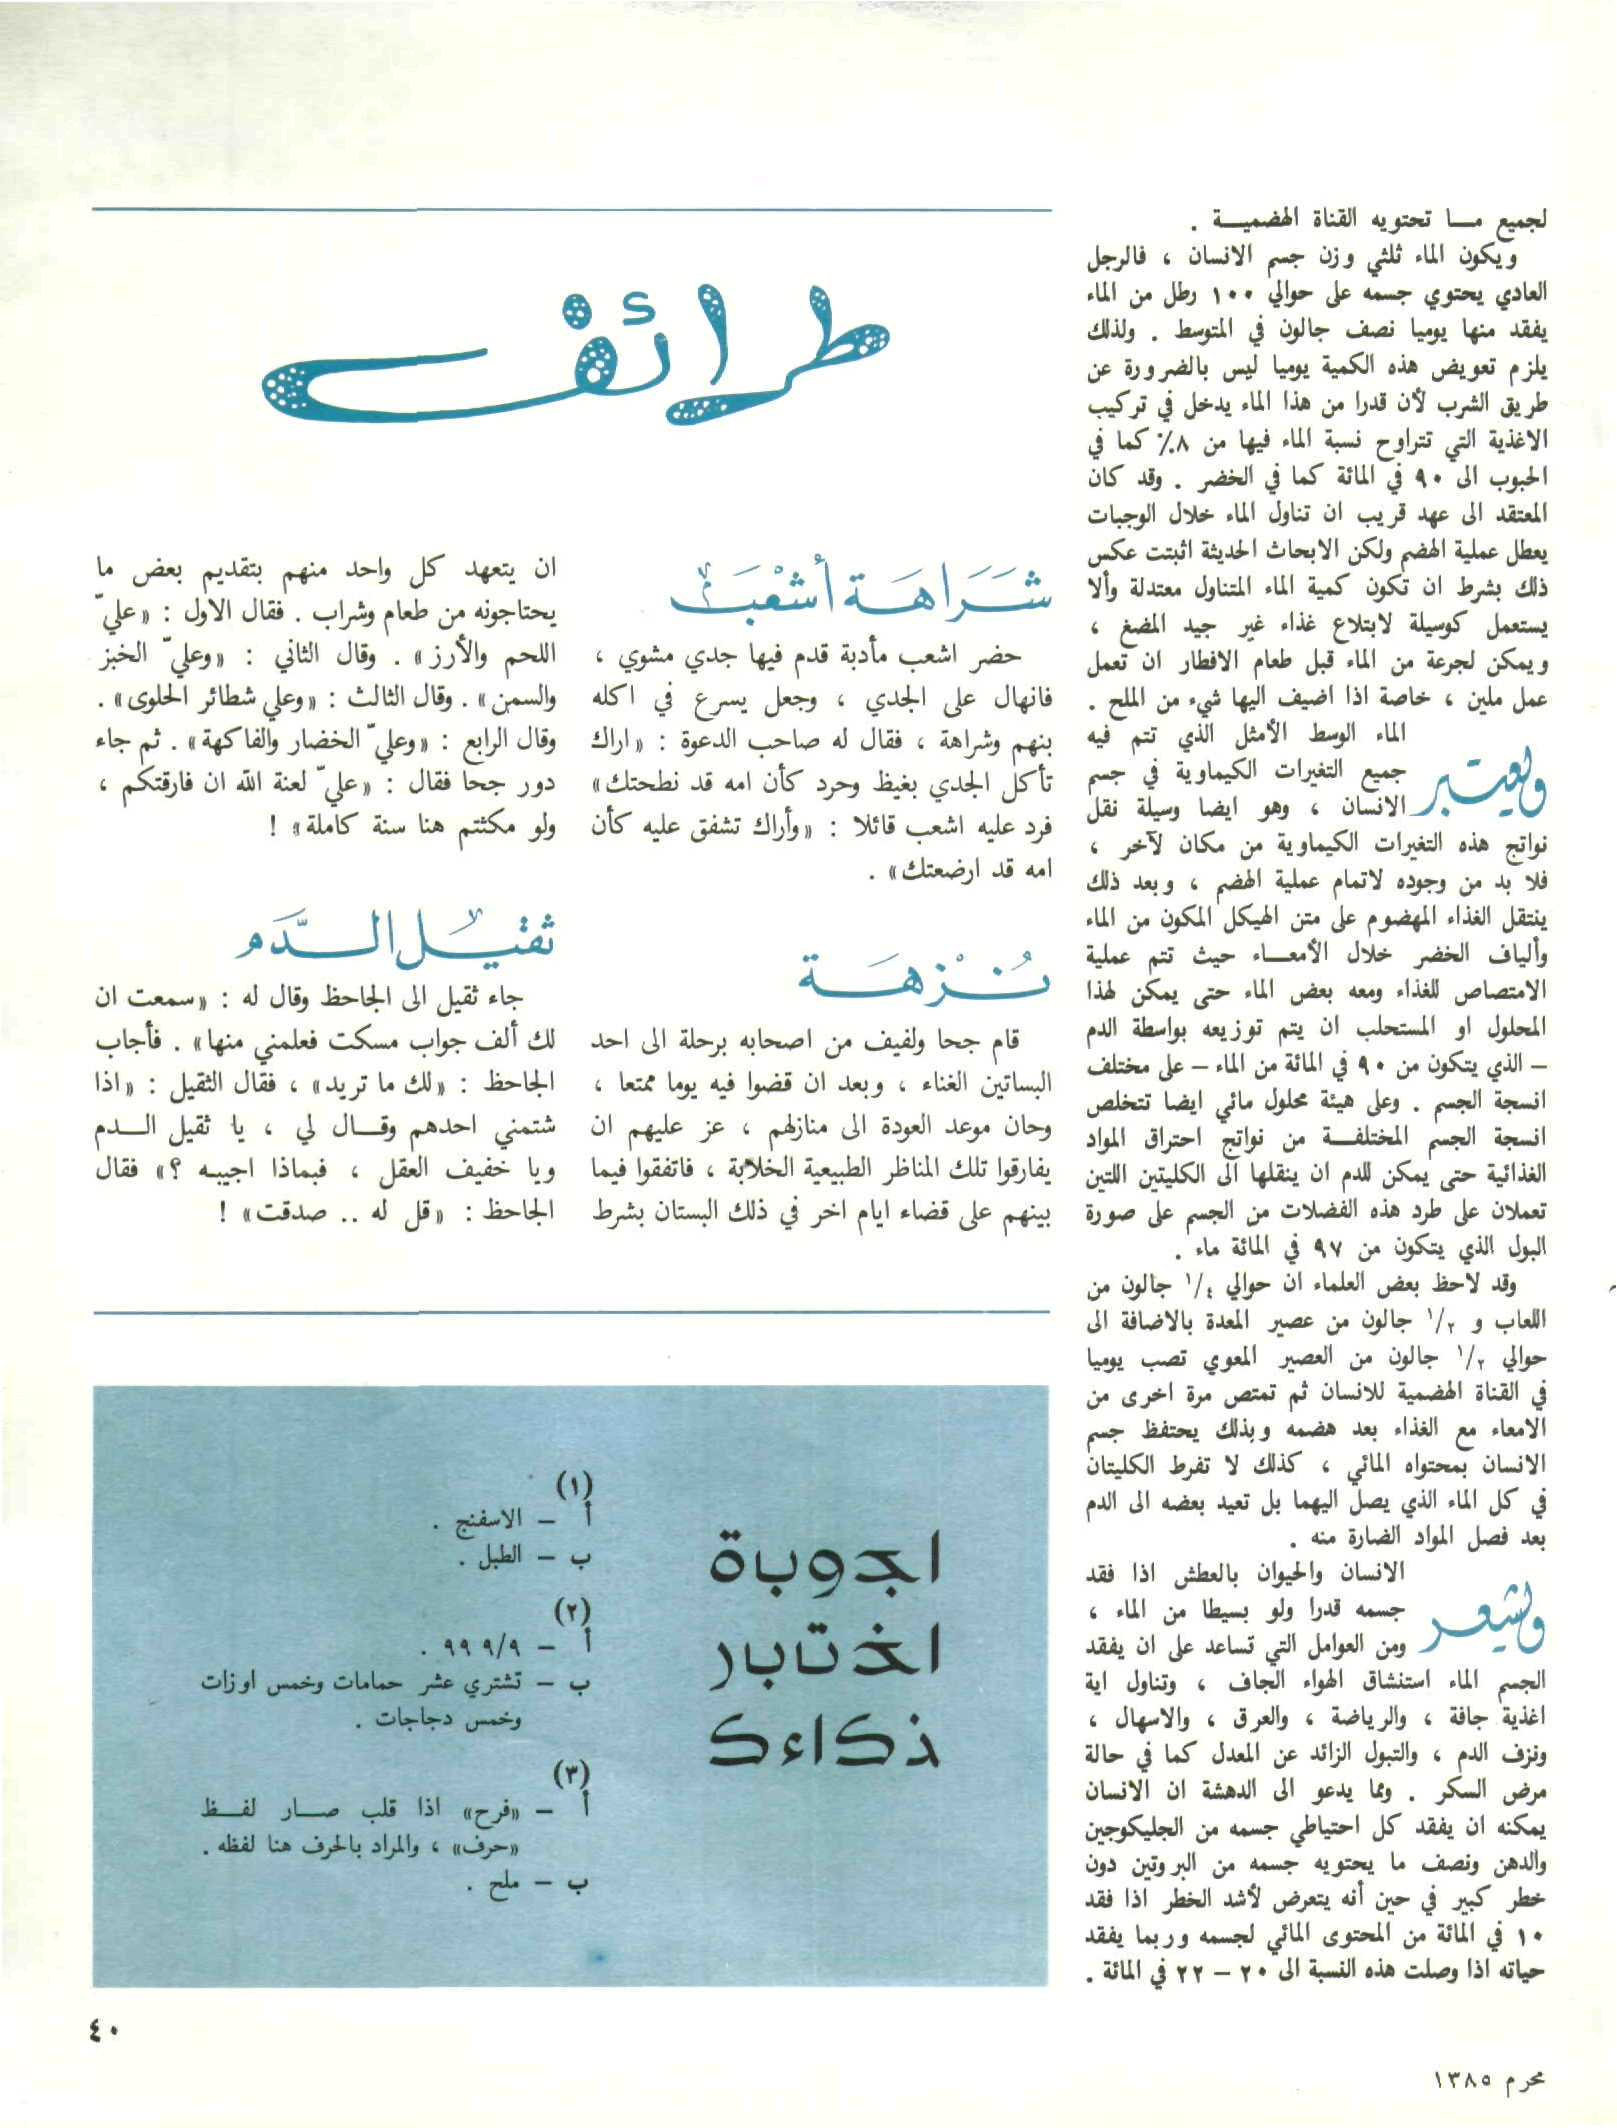 لجميع مـــا تحتويه القناة الهضميـــة .
ويكون الماء ثلثي وزن جسم الانسان ، فالرجل
العادي يحتوي جسمه على حوالي ١٠٠ رطل من الماء
يفقد منها يوميا نصف جالون في المتوسط . ولذلك
يلزم تعويض هذه الكمية يوميا ليس بالضرورة عن
طريق الشرب لأن قدرا من هذا الماء يدخل في تركيب
الاغذية التي تتراوح نسبة الماء فيها من ٨٪ كما في
الحبوب الى ٩٠ في المائة كما في الخضر . وقد كان
المعتقد الى عهد قريب ان تناول الماء خلال الوجبات
يعطل عملية الهضم ولكن الابحاث الحديثة اثبتت عكس
ذلك بشرط ان تكون كمية الماء المتناول معتدلة وألا
يستعمل كوسيلة لابتلاع غذاء غير جيد المضغ ،
ويمكن لجرعة من الماء قبل طعام الافطار ان تعمل
عمل ملين ، خاصة اذا اضيف اليها شيء من الملح .
ويعتبر الماء الوسط الأمثل الذي تتم فيه
جميع التغيرات الكيماوية في جسم
الانسان ، وهو ايضا وسيلة نقل
نواتج هذه التغيرات الكيماوية من مكان لآخر ،
فلا بد من وجوده لاتمام عملية الهضم ، وبعد ذلك
ينتقل الغذاء المهضوم على متن الهيكل المكون من الماء
وألياف الخضر خلال الأمعـــاء حيث تتم عملية
الامتصاص للغذاء ومعه بعض الماء حتى يمكن لهذا
المحلول او المستحلب ان يتم توزيعه بواسطة الدم
– الذي يتكون من ٩٠ في المائة من الماء – على مختلف
انسجة الجسم . وعلى هيئة محلول مائي ايضا تتخلص
انسجة الجسم المختلفـــة من نواتج احتراق المواد
الغذائية حتى يمكن للدم ان ينقلها الى الكليتين اللتين
تعملان على طرد هذه الفضلات من الجسم على صورة
البول الذي يتكون من ٩٧ في المائة ماء .
وقد لاحظ بعض العلماء ان حوالي ١/٤ جالون من
اللعاب و ١/٢ جالون من عصير المعدة بالاضافة الى
حوالي ١/٢ جالون من العصير المعوي تصب يوميا
في القناة الهضمية للانسان ثم تمتص مرة اخرى من
الامعاء مع الغذاء بعد هضمه وبذلك يحتفظ جسم
الانسان بمحتواه المائي ، كذلك لا تفرط الكليتان
في كل الماء الذي يصل اليهما بل تعيد بعضه الى الدم
بعد فصل المواد الضارة منه .
ويشعر الانسان والحيوان بالعطش اذا فقد
جسمه قدرا ولو بسيطا من الماء ،
ومن العوامل التي تساعد على ان يفقد
الجسم الماء استنشاق الهواء الجاف ، وتناول اية
اغذية جافة ، والرياضة ، والعرق ، والاسهال ،
ونزف الدم ، والتبول الزائد عن المعدل كما في حالة
مرض السكر . ومما يدعو الى الدهشة ان الانسان
يمكنه ان يفقد كل احتياطي جسمه من الجليكوجين
والدهن ونصف ما يحتويه جسمه من البروتين دون
خطر كبير في حين أنه يتعرض لأشد الخطر اذا فقد
١٠ في المائة من المحتوى المائي لجسمه وربما يفقد
حياته اذا وصلت هذه النسبة الى ٢٠ – ٢٢ في المائة .
طرائف
شَرَاهَة أشْعَبْ
حضر اشعب مأدبة قدم فيها جدي مشوي ،
فانهال على الجدي ، وجعل يسرع في اكله
بنهم وشراهة ، فقال له صاحب الدعوة : «اراك
تأكل الجدي بغيظ وحرد كأن امه قد نطحتك»
فرد عليه اشعب قائلا : «وأراك تشفق عليه كأن
امه قد ارضعتك» .
نُزْهَة
قام جحا ولفيف من اصحابه برحلة الى احد
البساتين الغناء ، وبعد ان قضوا فيه يوما ممتعا ،
وحان موعد العودة الى منازلهم ، عز عليهم ان
يفارقوا تلك المناظر الطبيعية الخلابة ، فاتفقوا فيما
بينهم على قضاء ايام اخر في ذلك البستان بشرط
ان يتعهد كل واحد منهم بتقديم بعض ما
يحتاجونه من طعام وشراب . فقال الاول : «عليّ
اللحم والأرز» . وقال الثاني : «وعليّ الخبز
والسمن» . وقال الثالث : «وعلي شطائر الحلوى» .
وقال الرابع : «وعليّ الخضار والفاكهة» . ثم جاء
دور جحا فقال : «عليّ لعنة الله ان فارقتكم ،
ولو مكثتم هنا سنة كاملة» !
ثقيل الدَّم
جاء ثقيل الى الجاحظ وقال له : «سمعت ان
لك ألف جواب مسكت فعلمني منها» . فأجاب
الجاحظ : «لك ما تريد» ، فقال الثقيل : «اذا
شتمني احدهم وقـــال لي ، يا ثقيل الـــدم
ويا خفيف العقل ، فبماذا اجيبـه ؟» فقال
الجاحظ : «قل له .. صدقت» !
اجوبة
اختبار
ذكاءك
(١)
أ – الاسفنج .
ب – الطبل .
(٢)
أ – ٩٩ ٩/٩ .
ب – تشتري عشر حمامات وخمس اوزات
وخمس دجاجات .
(٣)
أ – «فرح» اذا قلب صـــار لفـــظ
«حرف» ، والمراد بالحرف هنا لفظه .
ب – ملح .
٤٠
محرم ١٣٨٥